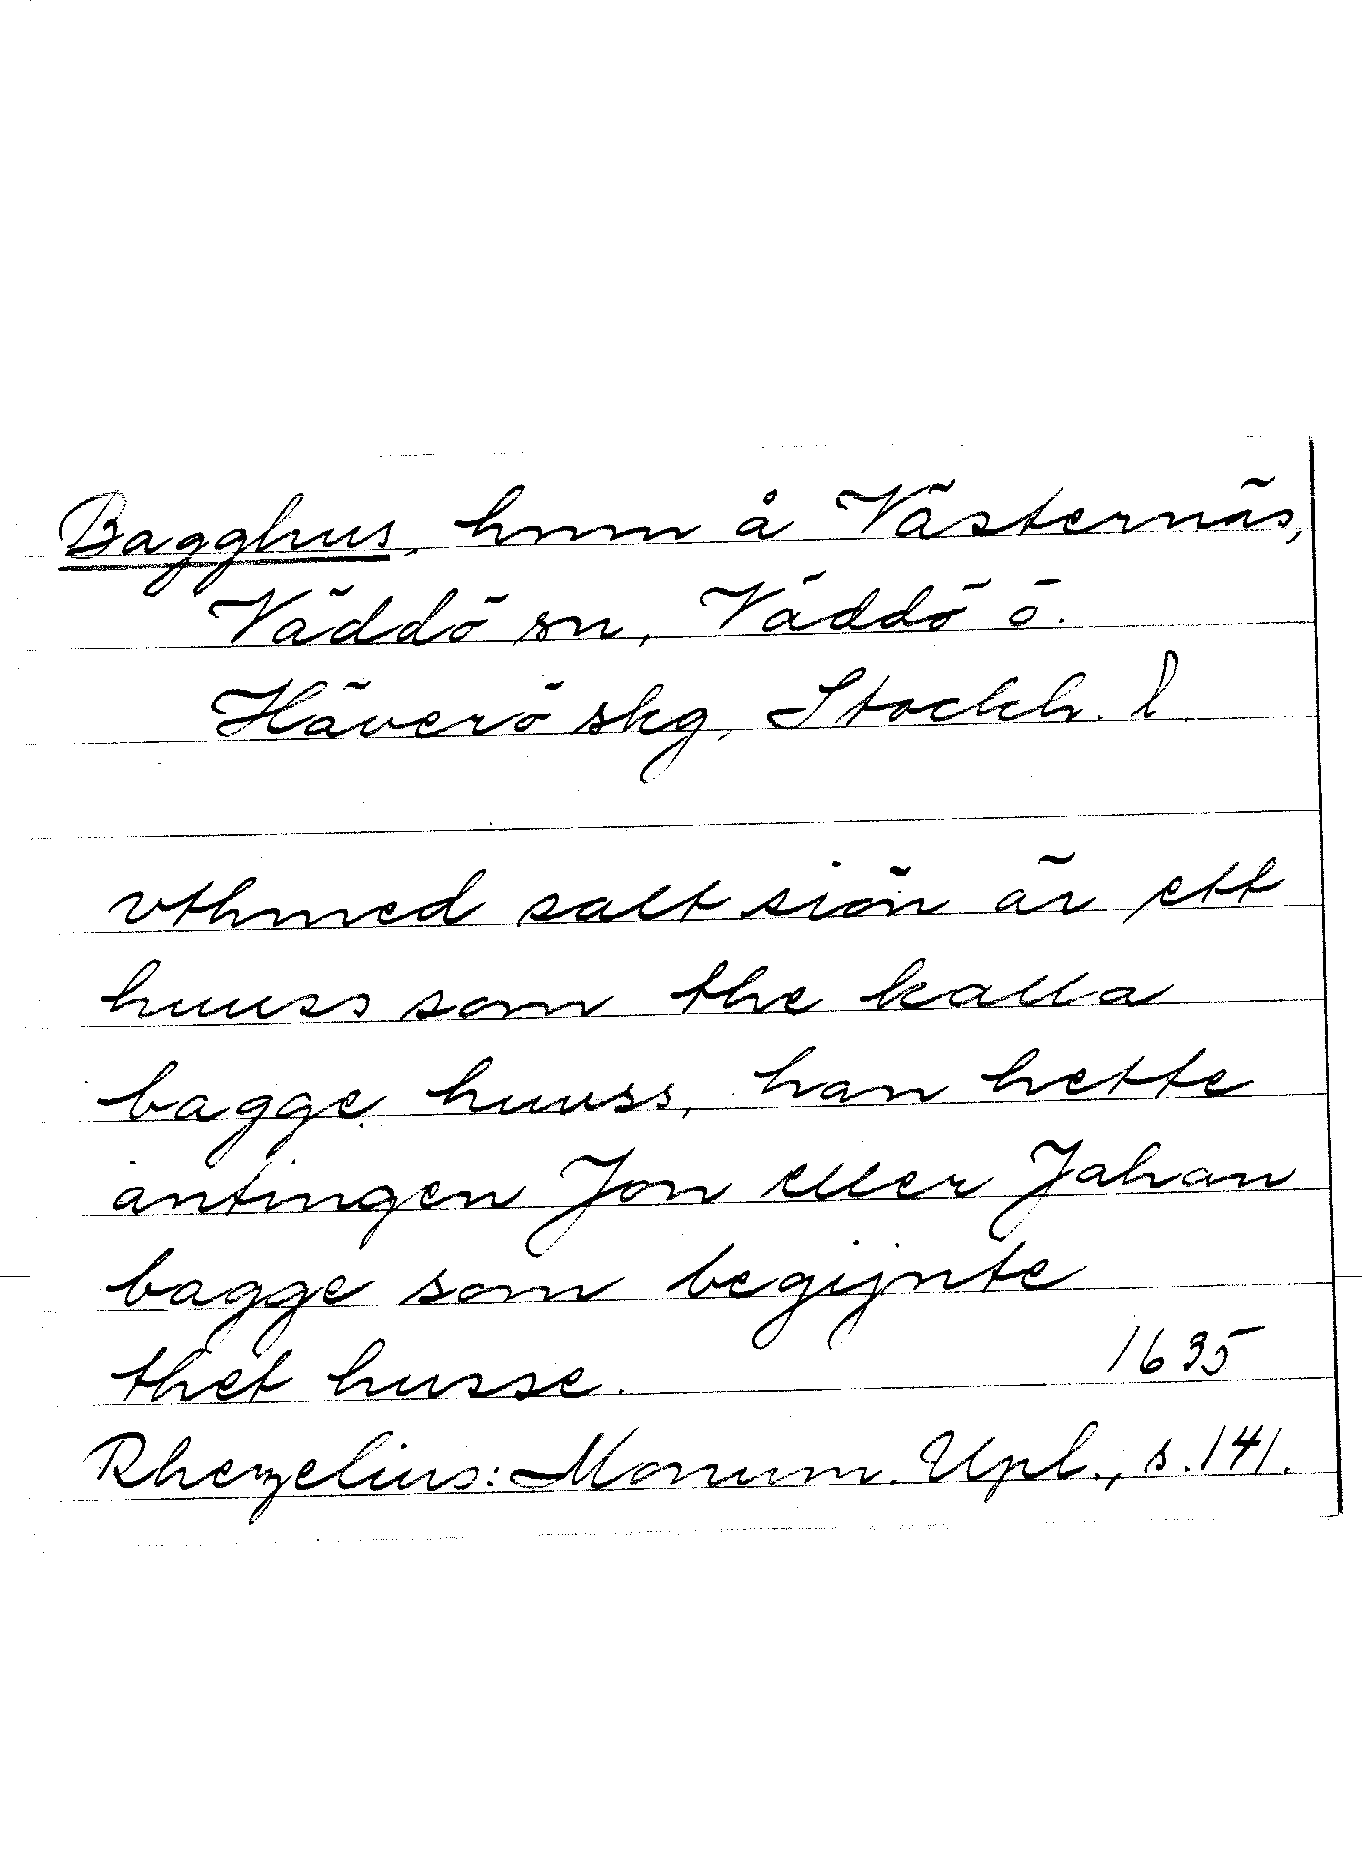 Bagghus, hmn å Västernäs,
Väddö sn, Väddö ö.
Häverö skg, Stockh. l.
vthmed salt siön är ett
huuss som the kalla
bagge huuss, han hette
antingen Jon eller Jahan
bagge som begijnte
thet husse. 1635
Rhezelius: Monum. Upl., s. 141.